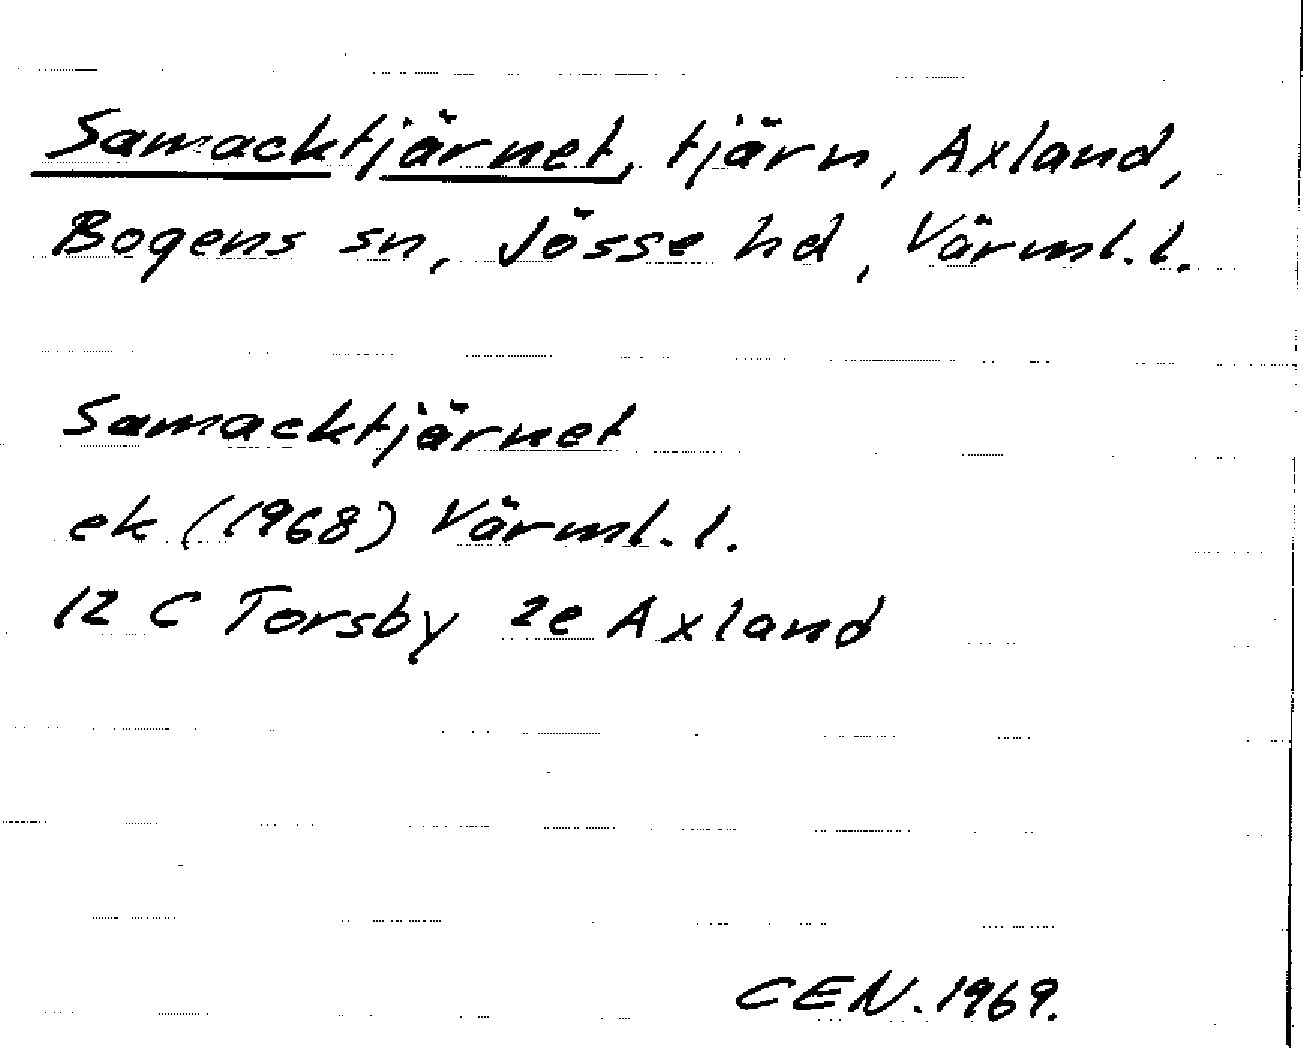 Samacktjärnet, tjärn, Axland,
Bogens sn, Jösse hd, Värml. l.
Samacktjärnet
ek (1968) Värml. l.
12 C Torsby 2e Axland
CEN. 1969.